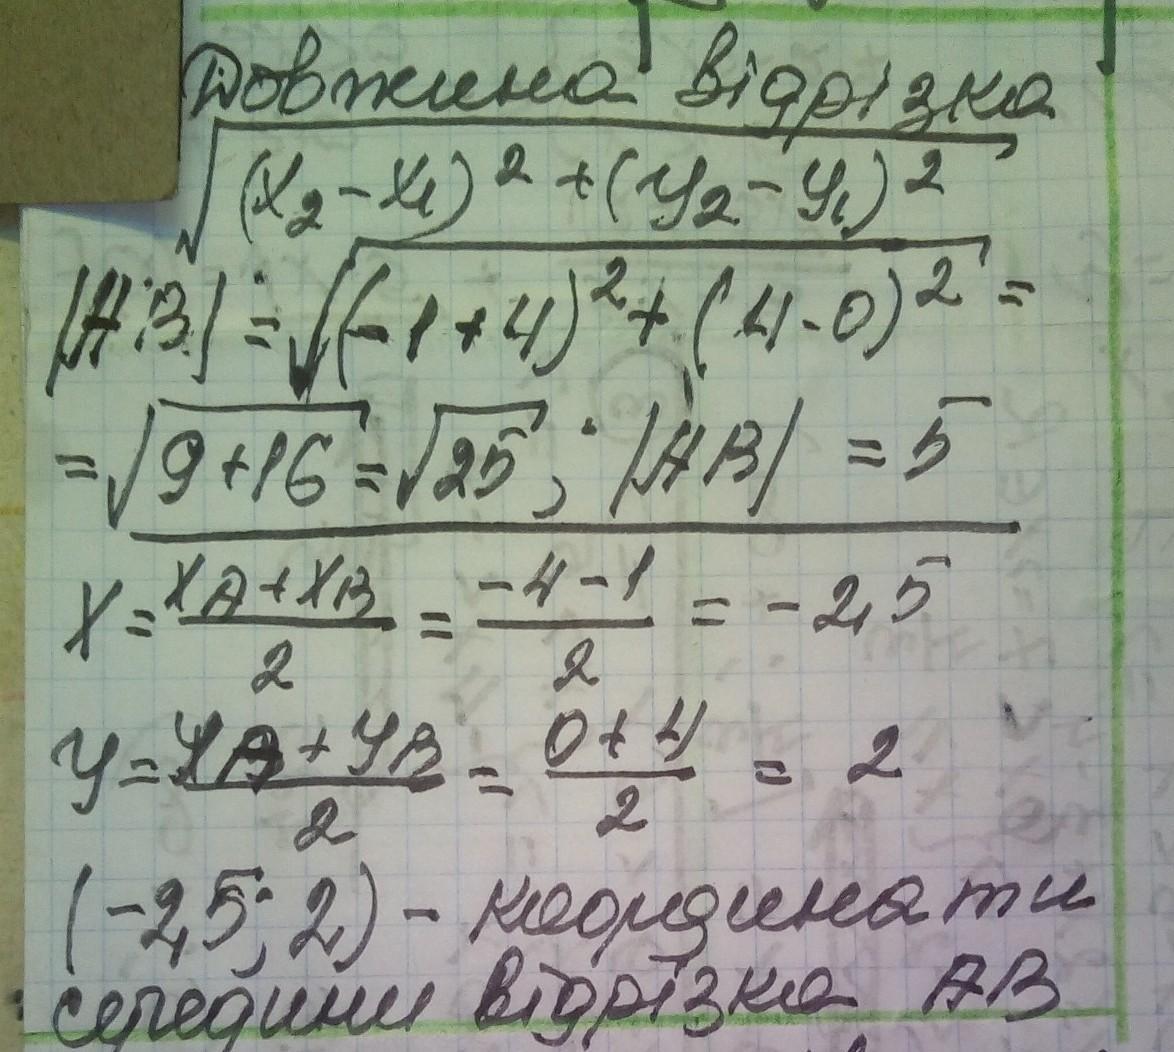 Довжина відрізка
√(x₂-x₁)² + (y₂-y₁)²
|AB| = √(-1+4)² + (4-0)² =
= √9+16 = √25 ; |AB| = 5
X = (XA + XB)/2 = (-4-1)/2 = -2,5
y = (yA + yB)/2 = (0+4)/2 = 2
(-2,5; 2) - координати
середини відрізка AB